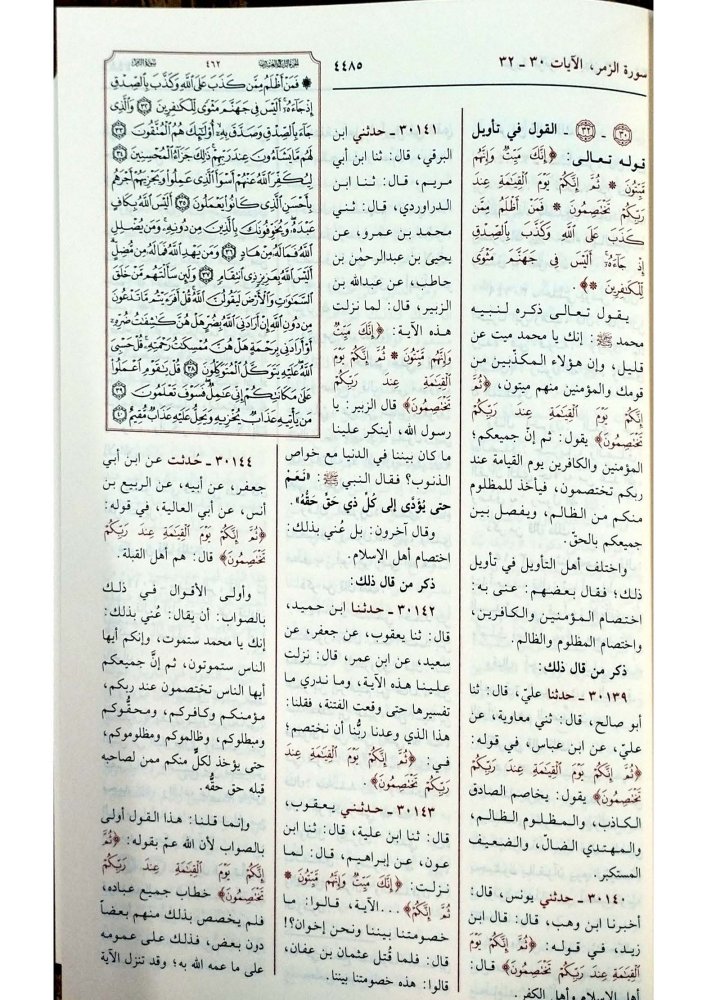 سورة الزمر، الآيات ٣٠ ـ ٣٢
٤٤٨٥
٣٠ ـ ٣٢ القول في تأويل
قوله تعالى: ﴿إِنَّكَ مَيِّتٌ وَإِنَّهُم
مَّيِّتُونَ * ثُمَّ إِنَّكُمْ يَوْمَ الْقِيَٰمَةِ عِندَ
رَبِّكُمْ تَخْتَصِمُونَ * فَمَنْ أَظْلَمُ مِمَّن
كَذَبَ عَلَى اللَّهِ وَكَذَّبَ بِالصِّدْقِ
إِذْ جَاءَهُۥٓ أَلَيْسَ فِى جَهَنَّمَ مَثْوًى
لِّلْكَٰفِرِينَ *﴾
يقول تعالى ذكره لنبيه
محمد ﷺ: إنك يا محمد ميت عن
قليل، وإن هؤلاء المكذّبين من
قومك والمؤمنين منهم ميتون، ﴿ثُمَّ
إِنَّكُمْ يَوْمَ الْقِيَٰمَةِ عِندَ رَبِّكُمْ
تَخْتَصِمُونَ﴾ يقول: ثم إنّ جميعكم؛
المؤمنين والكافرين يوم القيامة عند
ربكم تختصمون، فيأخذ للمظلوم
منكم من الظالم، ويفصل بين
جميعكم بالحقّ.
واختلف أهل التأويل في تأويل
ذلك؛ فقال بعضهم: عنى به:
اختصام المؤمنين والكافرين،
واختصام المظلوم والظالم.
ذكر من قال ذلك:
٣٠١٣٩ ـ حدثنا عليّ، قال: ثنا
أبو صالح، قال: ثني معاوية، عن
عليّ، عن ابن عباس، في قوله:
﴿ثُمَّ إِنَّكُمْ يَوْمَ الْقِيَٰمَةِ عِندَ رَبِّكُمْ
تَخْتَصِمُونَ﴾ يقول: يخاصم الصادق
الكاذب، والمظلوم الظالم،
والمهتدي الضالّ، والضعيف
المستكبر.
٣٠١٤٠ ـ حدثني يونس، قال:
أخبرنا ابن وهب، قال: قال ابن
زيد، في قوله: ﴿ثُمَّ إِنَّكُمْ يَوْمَ
الْقِيَٰمَةِ عِندَ رَبِّكُمْ تَخْتَصِمُونَ﴾ قال:
أهل الإسلام وأهل الكفر.
٣٠١٤١ ـ حدثني ابن
البرقي، قال: ثنا ابن أبي
مريم، قال: ثنا ابن
الدراوردي، قال: ثني
محمد بن عمرو، عن
يحيى بن عبدالرحمٰن بن
حاطب، عن عبدالله بن
الزبير، قال: لما نزلت
هذه الآية: ﴿إِنَّكَ مَيِّتٌ
وَإِنَّهُم مَّيِّتُونَ * ثُمَّ إِنَّكُمْ يَوْمَ
الْقِيَٰمَةِ عِندَ رَبِّكُمْ
تَخْتَصِمُونَ﴾ قال الزبير: يا
رسول الله، أينكر علينا
ما كان بيننا في الدنيا مع خواص
الذنوب؟ فقال النبي ﷺ: «نَعَمْ
حتى يُؤَدَّى إلى كُلِّ ذي حَقّ حَقُّهُ».
وقال آخرون: بل عُني بذلك:
اختصام أهل الإسلام.
ذكر من قال ذلك:
٣٠١٤٢ ـ حدثنا ابن حميد،
قال: ثنا يعقوب، عن جعفر، عن
سعيد، عن ابن عمر، قال: نزلت
علينا هذه الآية، وما ندري ما
تفسيرها حتى وقعت الفتنة، فقلنا:
هذا الذي وعدنا ربُّنا أن نختصم؛
في: ﴿ثُمَّ إِنَّكُمْ يَوْمَ الْقِيَٰمَةِ عِندَ
رَبِّكُمْ تَخْتَصِمُونَ﴾.
٣٠١٤٣ ـ حدثني يعقوب،
قال: ثنا ابن علية، قال: ثنا ابن
عون، عن إبراهيم، قال: لما
نزلت: ﴿إِنَّكَ مَيِّتٌ وَإِنَّهُم مَّيِّتُونَ *
ثُمَّ إِنَّكُمْ﴾... الآية، قالوا: ما
خصومتنا بيننا ونحن إخوان؟!
قال: فلما قُتل عثمان بن عفان،
قالوا: هذه خصومتنا بيننا.
٤٦٢
سورة الزمر
فَمَنْ أَظْلَمُ مِمَّن كَذَبَ عَلَى اللَّهِ وَكَذَّبَ بِالصِّدْقِ
إِذْ جَاءَهُۥٓ أَلَيْسَ فِى جَهَنَّمَ مَثْوًى لِّلْكَٰفِرِينَ ٣٢ وَالَّذِى
جَاءَ بِالصِّدْقِ وَصَدَّقَ بِهِۦٓ أُو۟لَٰٓئِكَ هُمُ الْمُتَّقُونَ ٣٣
لَهُم مَّا يَشَاءُونَ عِندَ رَبِّهِمْ ذَٰلِكَ جَزَاءُ الْمُحْسِنِينَ ٣٤
لِيُكَفِّرَ اللَّهُ عَنْهُمْ أَسْوَأَ الَّذِى عَمِلُوا وَيَجْزِيَهُمْ أَجْرَهُم
بِأَحْسَنِ الَّذِى كَانُوا يَعْمَلُونَ ٣٥ أَلَيْسَ اللَّهُ بِكَافٍ
عَبْدَهُۥ وَيُخَوِّفُونَكَ بِالَّذِينَ مِن دُونِهِۦ وَمَن يُضْلِلِ
اللَّهُ فَمَا لَهُۥ مِنْ هَادٍ ٣٦ وَمَن يَهْدِ اللَّهُ فَمَا لَهُۥ مِن مُّضِلٍّ
أَلَيْسَ اللَّهُ بِعَزِيزٍ ذِى انتِقَامٍ ٣٧ وَلَئِن سَأَلْتَهُم مَّنْ خَلَقَ
السَّمَٰوَٰتِ وَالْأَرْضَ لَيَقُولُنَّ اللَّهُ قُلْ أَفَرَءَيْتُم مَّا تَدْعُونَ
مِن دُونِ اللَّهِ إِنْ أَرَادَنِىَ اللَّهُ بِضُرٍّ هَلْ هُنَّ كَٰشِفَٰتُ ضُرِّهِۦٓ
أَوْ أَرَادَنِى بِرَحْمَةٍ هَلْ هُنَّ مُمْسِكَٰتُ رَحْمَتِهِۦ قُلْ حَسْبِىَ
اللَّهُ عَلَيْهِ يَتَوَكَّلُ الْمُتَوَكِّلُونَ ٣٨ قُلْ يَٰقَوْمِ اعْمَلُوا
عَلَىٰ مَكَانَتِكُمْ إِنِّى عَٰمِلٌ فَسَوْفَ تَعْلَمُونَ ٣٩
مَن يَأْتِيهِ عَذَابٌ يُخْزِيهِ وَيَحِلُّ عَلَيْهِ عَذَابٌ مُّقِيمٌ ٤٠
٣٠١٤٤ ـ حُدثت عن ابن أبي
جعفر، عن أبيه، عن الربيع بن
أنس، عن أبي العالية، في قوله:
﴿ثُمَّ إِنَّكُمْ يَوْمَ الْقِيَٰمَةِ عِندَ رَبِّكُمْ
تَخْتَصِمُونَ﴾ قال: هم أهل القبلة.
وأولى الأقوال في ذلك
بالصواب: أن يقال: عُني بذلك:
إنك يا محمد ستموت، وإنكم أيها
الناس ستموتون، ثم إنَّ جميعكم
أيها الناس تختصمون عند ربكم،
مؤمنكم وكافركم، ومحقُّوكم
ومبطلوكم، وظالموكم ومظلوموكم،
حتى يؤخذ لكلٍّ منكم ممن لصاحبه
قبله حق حقُّه.
وإنما قلنا: هذا القول أولى
بالصواب لأن الله عمّ بقوله: ﴿ثُمَّ
إِنَّكُمْ يَوْمَ الْقِيَٰمَةِ عِندَ رَبِّكُمْ
تَخْتَصِمُونَ﴾ خطاب جميع عباده،
فلم يخصص بذلك منهم بعضاً
دون بعض، فذلك على عمومه
على ما عمه الله به؛ وقد تنزل الآية